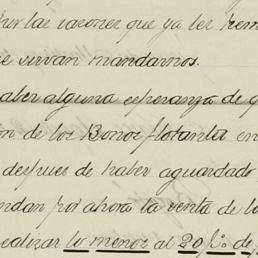 por las razones que ya les hem
se sirvan mandarnos.
haber alguna esperanza de q
on de los Bonos flotantes en
despues de haber aguardado
ndan por ahora la venta de lo
ealizar lo menos al 20 p% de p